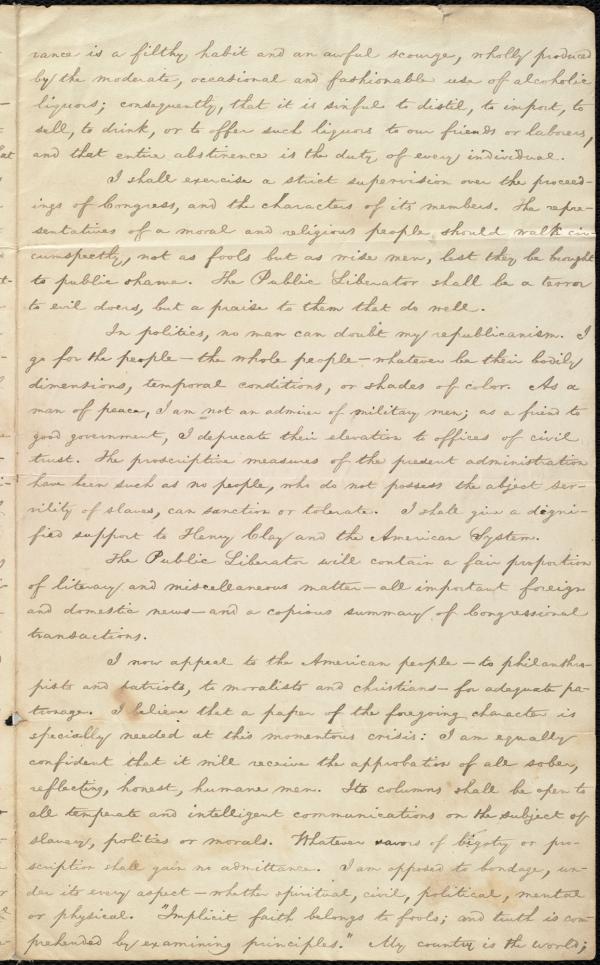 rance is a filthy habit and an awful scourge, wholly produced
by the moderate, occasional and fashionable use of alcoholic
liquors; consequently, that it is sinful to distil, to import, to
sell, to drink, or to offer such liquors to our friends or laborers,
and that entire abstinence is the duty of every individual.
I shall exercise a strict supervision over the proceed-
ings of Congress, and the characters of its members. The repre-
sentatives of a moral and religious people should walk cir-
cumspectly, not as fools but as wise men, lest they be brought
to public shame. The Public Liberator shall be a terror
to evil doers, but a praise to them that do well.
In politics, no man can doubt my republicanism. I
go for the people — the whole people — whatever be their bodily
dimensions, temporal conditions, or shades of color. As a
man of peace, I am not an admirer of military men; as a friend to
good government, I deprecate their elevation to offices of civil
trust. The proscriptive measures of the present administration
have been such as no people, who do not possess the abject ser-
vility of slaves, can sanction or tolerate. I shall give a digni-
fied support to Henry Clay and the American System.
The Public Liberator will contain a fair proportion
of literary and miscellaneous matter — all important foreign
and domestic news — and a copious summary of Congressional
transactions.
I now appeal to the American people — to philanthro-
pists and patriots, to moralists and christians — for adequate pa-
tronage. I believe that a paper of the foregoing character is
specially needed at this momentous crisis: I am equally
confident that it will receive the approbation of all sober,
reflecting, honest, humane men. Its columns shall be open to
all temperate and intelligent communications on the subject of
slavery, politics or morals. Whatever savors of bigotry or pro-
scription shall gain no admittance. I am opposed to bondage, un-
der its every aspect — whether spiritual, civil, political, mental
or physical. "Implicit faith belongs to fools; and truth is com-
prehended by examining principles." My country is the world;